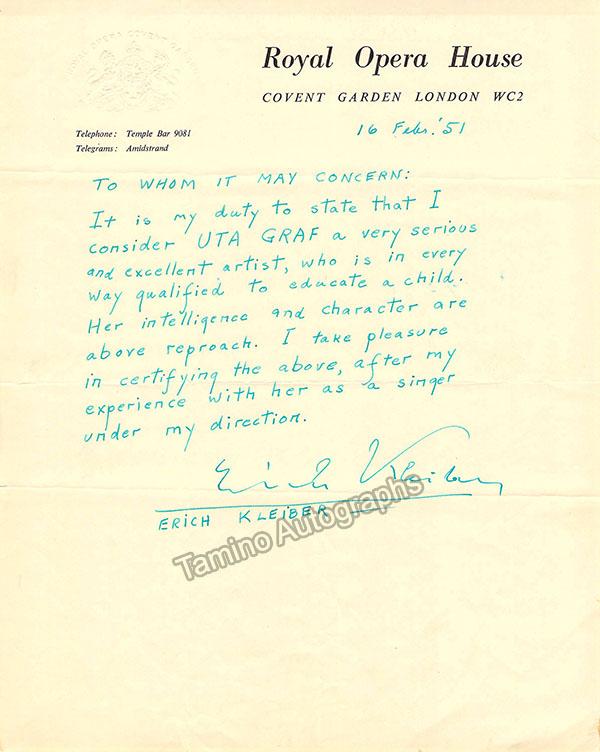 ROYAL OPERA COVENT GARDEN
Royal Opera House
COVENT GARDEN LONDON WC2
Telephone: Temple Bar 9081
Telegrams: Amidstrand
16 Febr. '51
TO WHOM IT MAY CONCERN:
It is my duty to state that I
consider UTA GRAF a very serious
and excellent artist, who is in every
way qualified to educate a child.
Her intelligence and character are
above reproach. I take pleasure
in certifying the above, after my
experience with her as a singer
under my direction.
Erich Kleiber
ERICH KLEIBER
Tamino Autographs